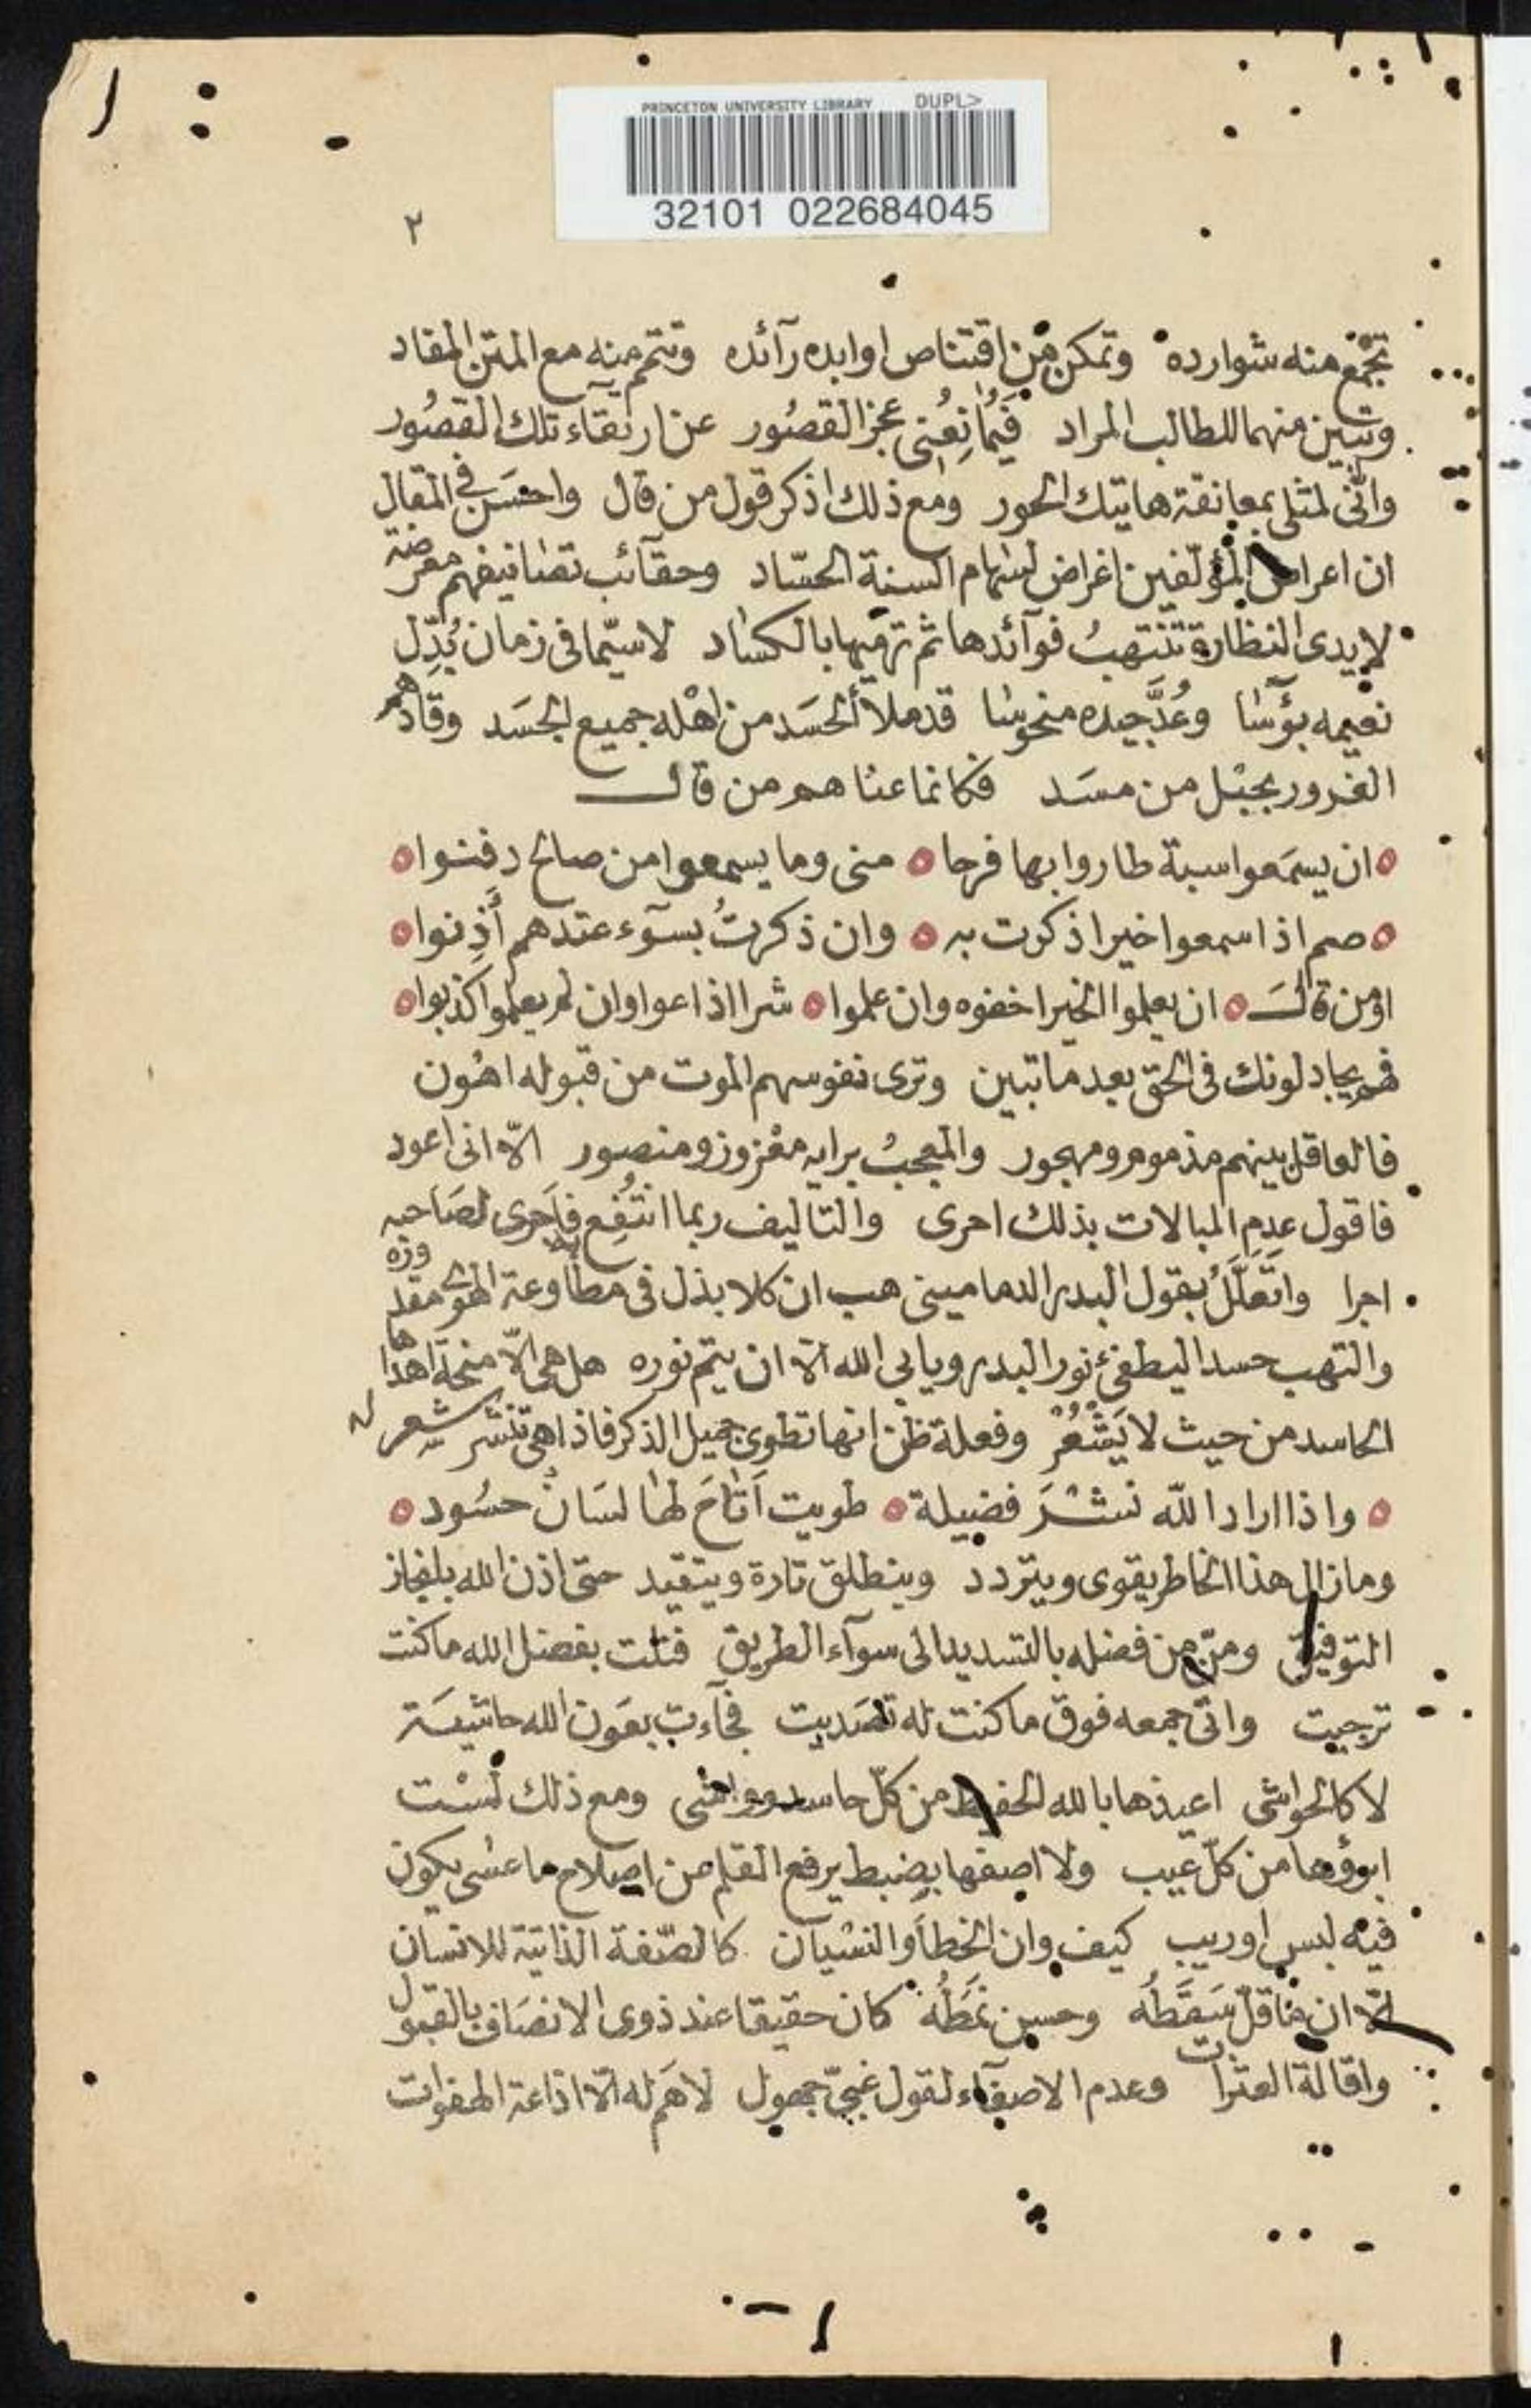 PRINCETON UNIVERSITY LIBRARY DUPL>
32101 022684045
٢
تجمع منه شوارده وتمكن من اقتناص اوابده رآئده وتتم منه مع المتن المفاد
وتبين منهما للطالب المراد فيمانعنى عجز القصور عن ارتقاء تلك القصور
وانّى لمثلى بمعانقة هاتيك الحور ومع ذلك اذكر قول من قال واحسن فى المقال
ان اعراض المؤلفين اغراض لسهام السنة الحسّاد وحقآئب تصانيفهم معرضة
لايدى النظارة تنتهبُ فوآئدها ثم ترميها بالكساد لاسيّما فى زمان بُدّل
نعيمه بؤسا وعُدَّ جيده منحوسا قد ملأ الحسد من اهله جميع الجسد وقادهم
الغرور بحبل من مسد فكانما عناهم من قال
ان يسمعوا سبة طاروا بها فرحا منى وما يسمعوا من صالح دفنوا
صم اذا سمعوا خيرا ذكرت به وان ذكرتُ بسوٓء عندهم أذنوا
اومن قال ان يعلموا الخير اخفوه وان علموا شرا اذاعوا وان لم يعلموا كذبوا
فهم يجادلونك فى الحق بعد ما تبين وترى نفوسهم الموت من قبوله اهون
فالعاقل بينهم مذموم ومهجور والمعجبُ برايه معزوز ومنصور الّا انى اعود
فاقول عدم المبالات بذلك احرى والتاليف ربما انتُفع به فاجرى لصاحبه
اجرا واتعلّلُ بقول البدر الدمامينى هب ان كلا بذل فى مطاوعة الهوى مقدوره
والتهب حسدا ليطفئ نور البدر ويابى الله الا ان يتم نوره هل هى الّا منحة اهداها
الحاسد من حيث لا يشعُرْ وفعلة ظن انها تطوى جميل الذكر فاذا هى تنشر شعر
واذا اراد الله نشر فضيلة طويت اتاح لها لسان حسود
ومازال هذا الخاطر يقوى ويتردد وينطلق تارة ويتقيد حتى اذن الله بانجاز
التوفيق ومنّ من فضله بالتسديد الى سوآء الطريق فنلت بفضل الله ما كنت
ترجيت واتى جمعه فوق ما كنت له تصديت فجآءت بعون الله حاشية
لا كالحواشى اعيذها بالله الحفيظ من كلّ حاسد وواشى ومع ذلك لسْت
ابرؤها من كلّ عيب ولا اصفها بضبط يرفع القلم عن اصلاح ما عسى يكون
فيه لبس او ريب كيف وان الخطأ والنسيان كالصّفة الذاتية للانسان
الّا ان من قلّ سقطُه وحسن نمطُه كان حقيقا عند ذوى الانصاف بالقبول
واقالة العثرات وعدم الاصغآء لقول غبىّ جهول لا همّ له الّا اذاعة الهفوات